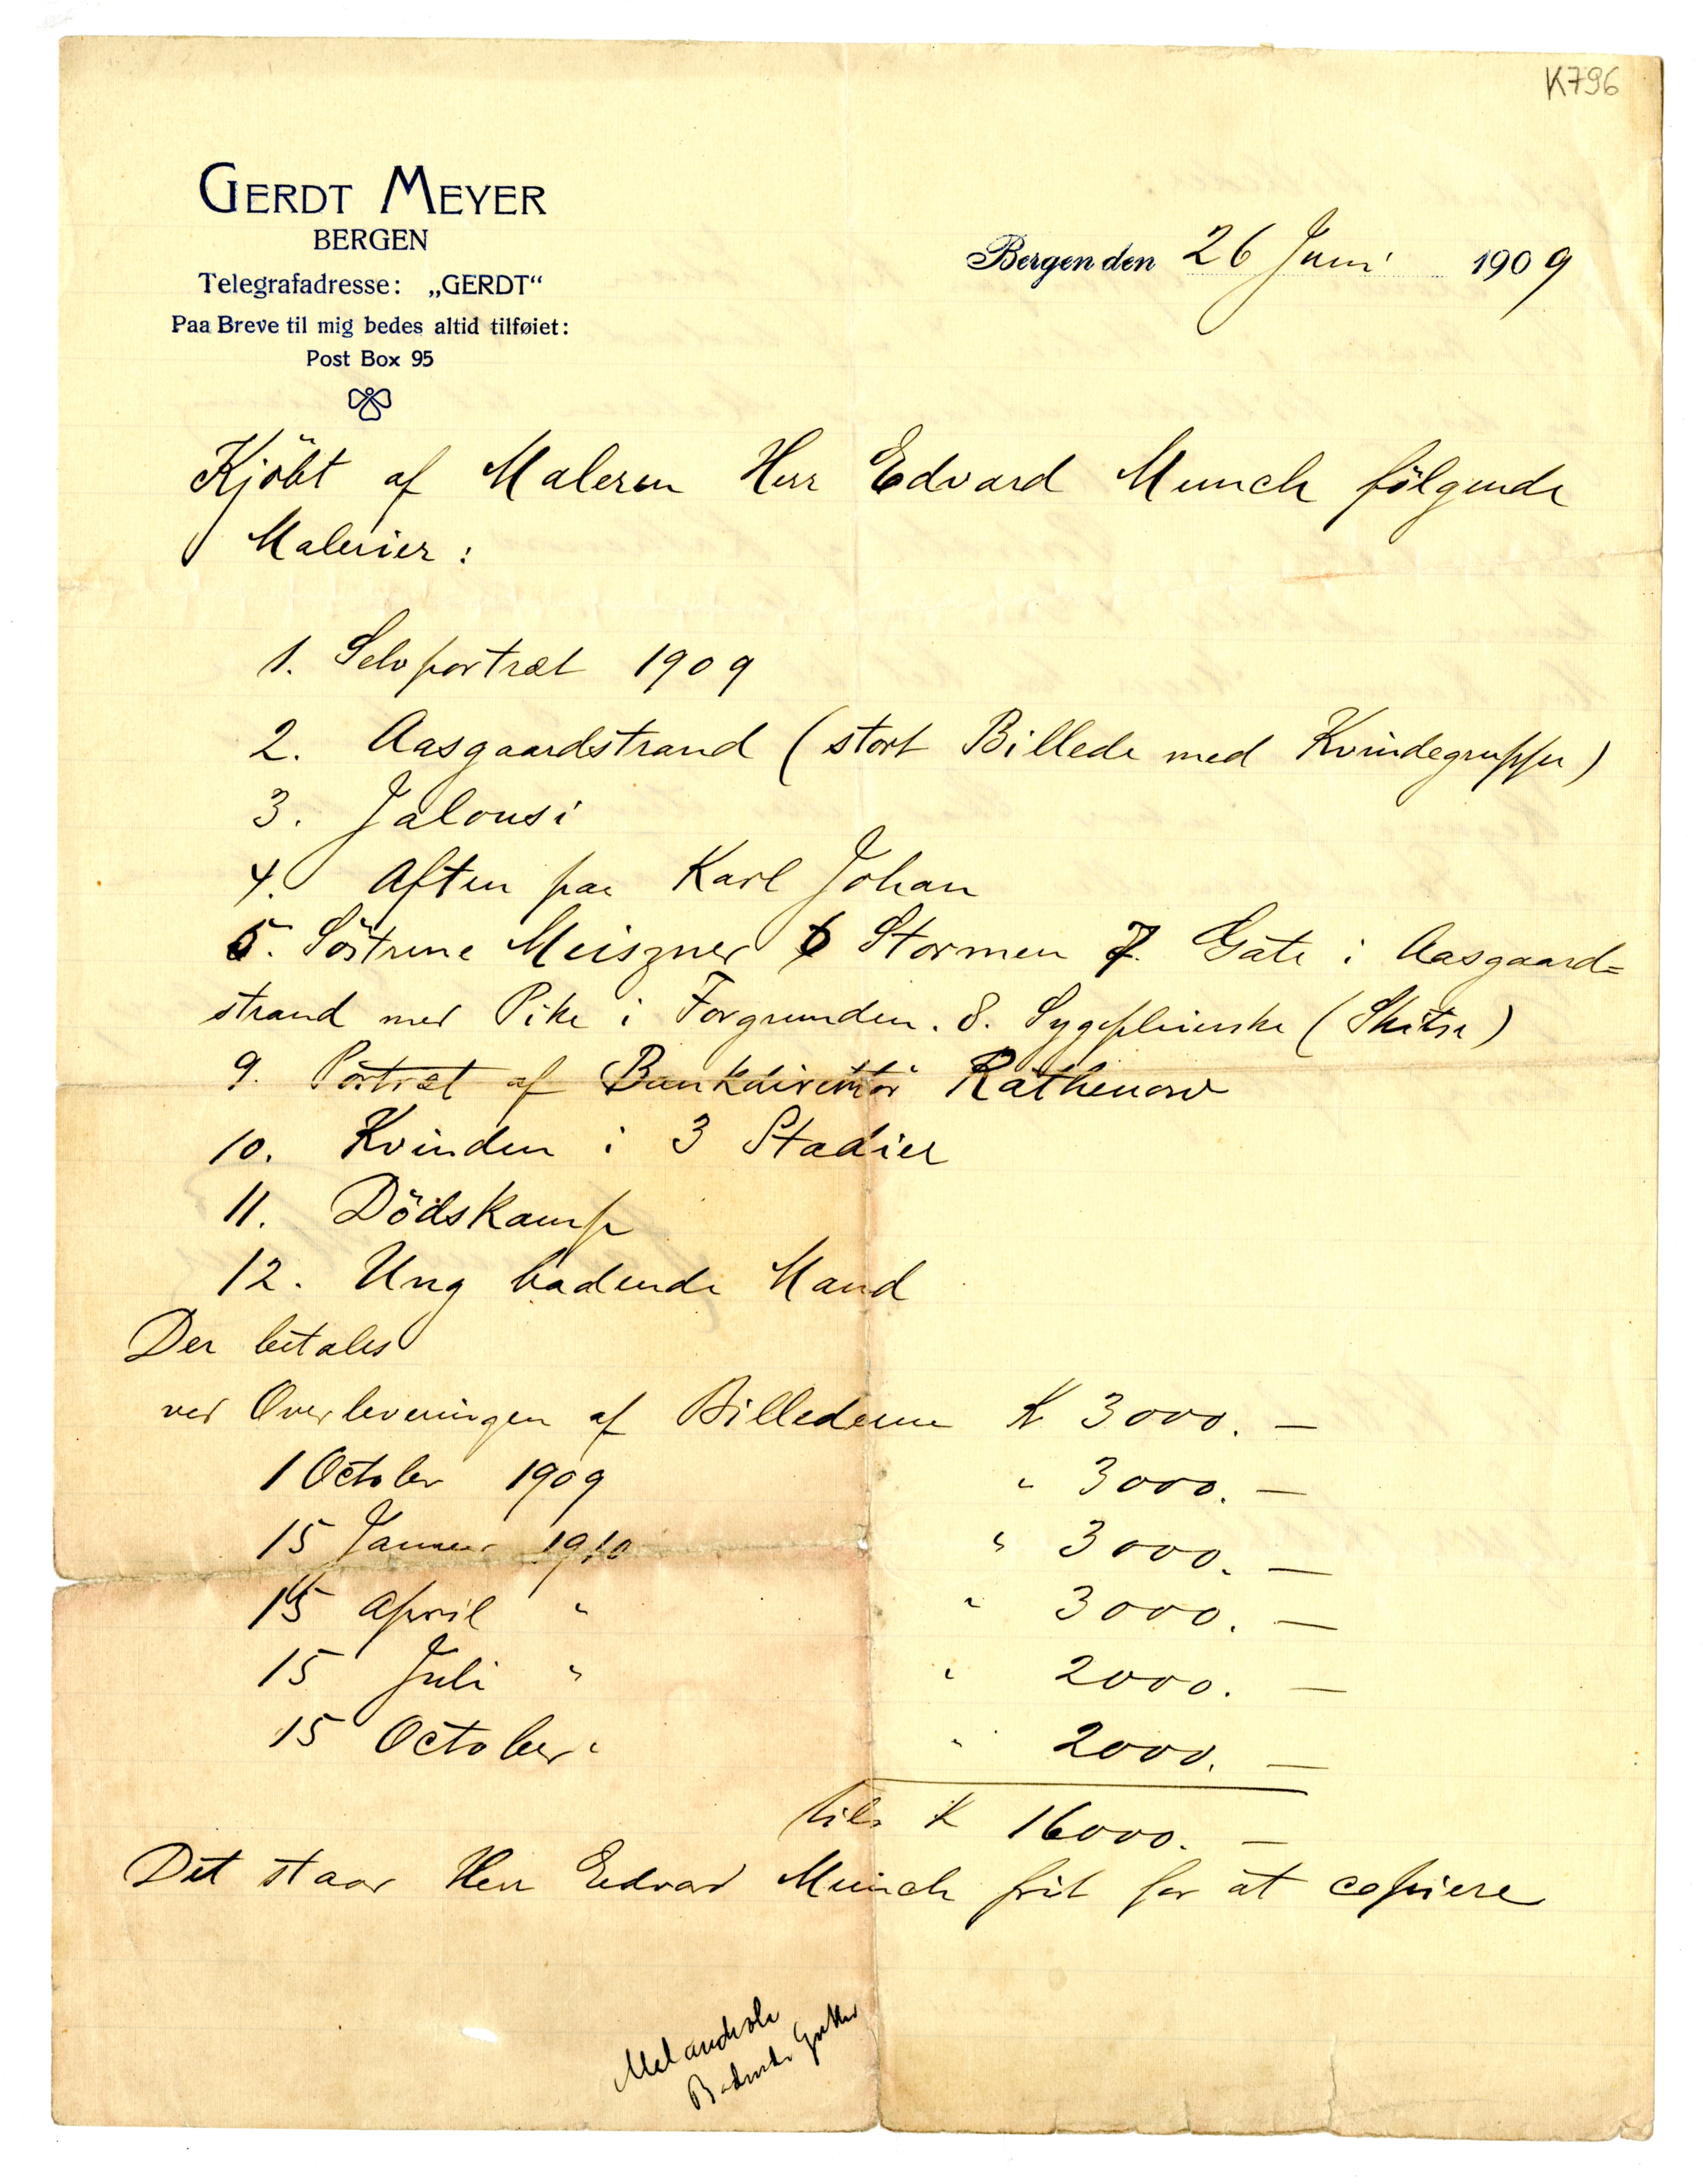 K796
GERDT MEYER
BERGEN
Telegrafadresse: „GERDT“
Paa Breve til mig bedes altid tilføiet:
Post Box 95
Bergen den 26 Juni 1909
Kjöbt af Maleren Herr Edvard Munch fölgende
Malerier:
1. Selvportræt 1909
2. Aasgaardstrand (stort Billede med Kvindegrupper)
3. Jalousi
4. Aften paa Karl Johan
5. Söstrene Meiszner 6 Stormen 7. Gate i Aasgaard=
strand med Pike i Forgrunden. 8. Sygepleierske (Skitse)
9. Portræt af Bankdirektör Rathenow
10. Kvinden i 3 Stadier
11. Dödskamp
12. Ung badende Mand
Der betales
ved Overleveringen af Billederne K 3000. —
1 October 1909 " 3000. —
15 Januar 1910 " 3000. —
15 April " " 3000. —
15 Juli " " 2000. —
15 October " " 2000. —
tils K 16000. —
Det staar Herr Edvard Munch frit for at copiere
Melancholi
Badende Gutter